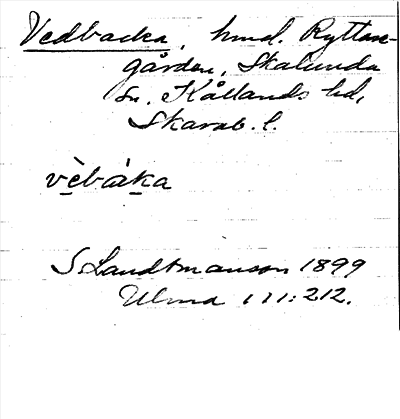 Vedbacka, hmd. Ryttare-
gården, Skalunda
sn, Kållands hd,
Skarab. l.
vèbáka
S. Landtmanson 1899
Ulma 111:212.